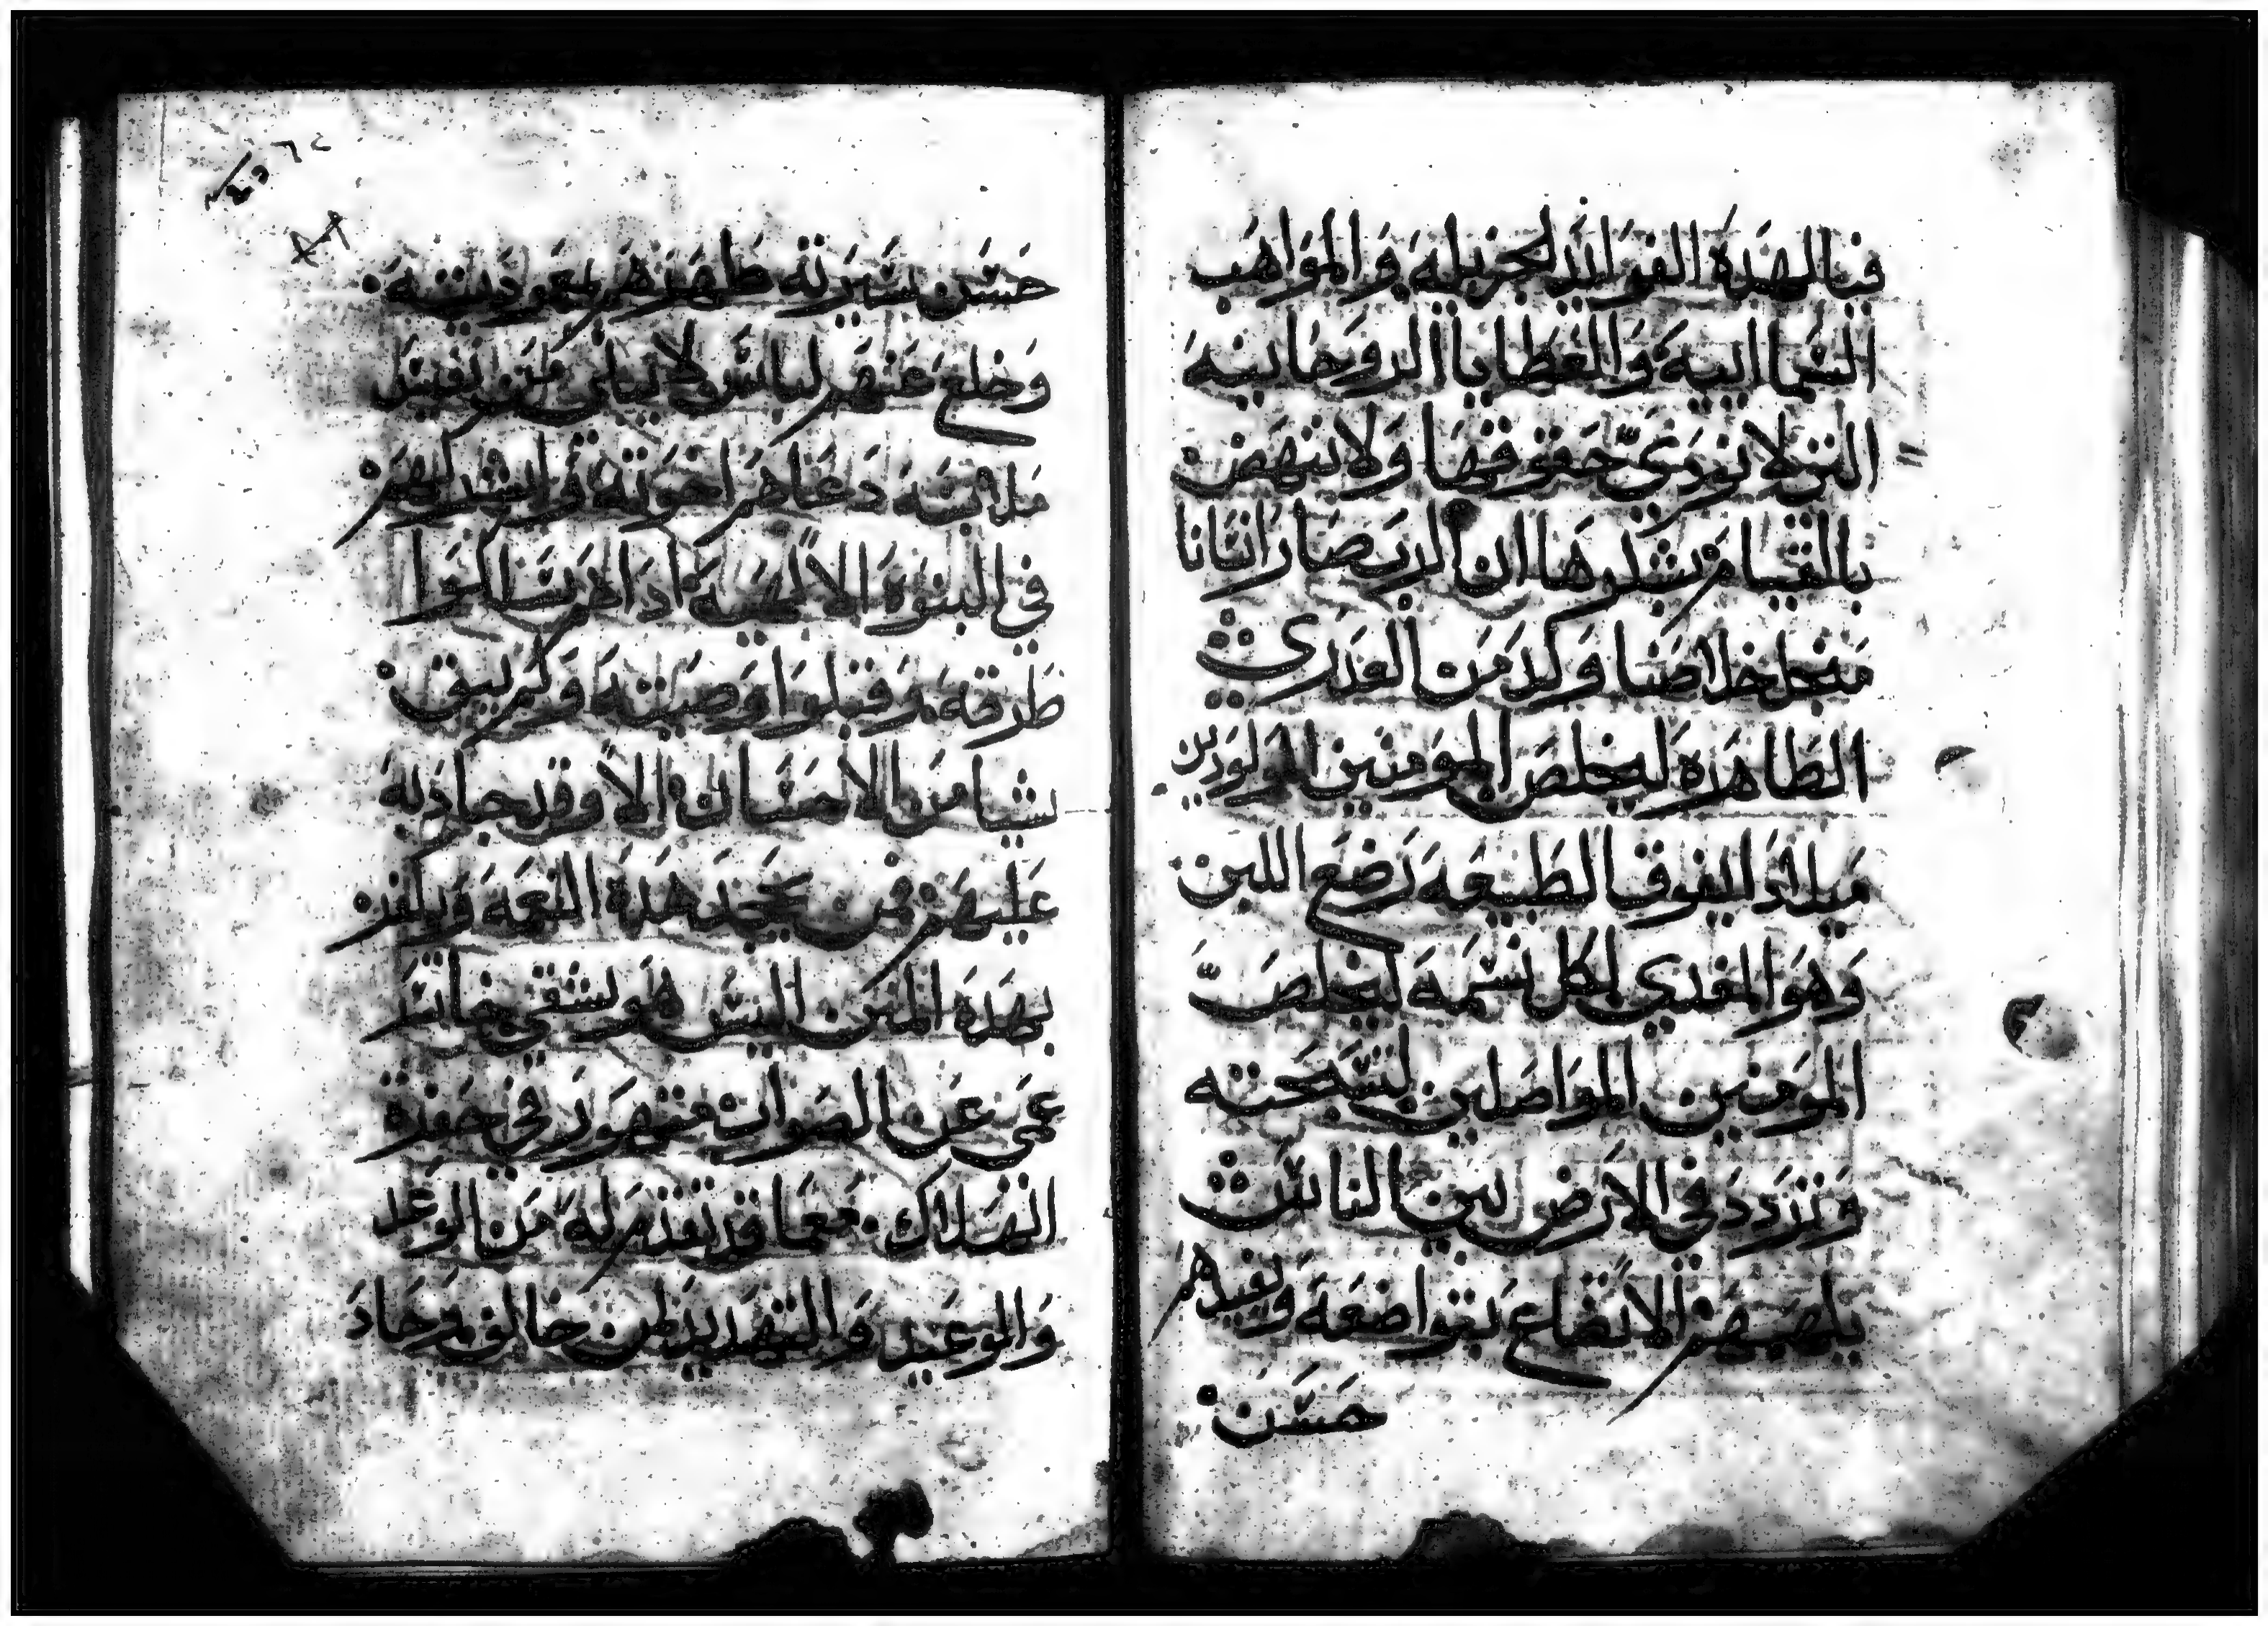 فيا لهذه الفوائد الجزيلة والمواهب
السماايية والعطايا الروحانية
التي لا نودي حقوقها ولا ننهض
بالقيام بشكرها ان الرب صار انسانا
من اجل خلاصنا وولد من العدري
الطاهرة ليخلص المومنين المولودين
ميلاد ايفوق الطبيعه رضع اللبن
وهو المغدي لكل نسمة ليخلص
المومنين المواصلين لبيعته
وتردد في الارض بين الناس
يلهمهم الاتضاع بتواضعه ويفيدهم
حسن
حسن سيرته طهرهم بمعموديته
وخلع عنهم لباس
ملابسه دعاهم اخوته وارشدهم
في البنوة الالهية اداهم سالكوا
طرقه وقبلوا وصيته ولم يبق
شيا من الاحسان الا وقد جاد به
عليهم فمن يجحد هذه النعمة ويكفر
بهذه المنن اليس هو بشقي خاسر
عمي عن الصواب متهور في حفرة
الهلاك معما قد تقدم له من الوعد
والوعيد والتهديد لمن خالف وحاد